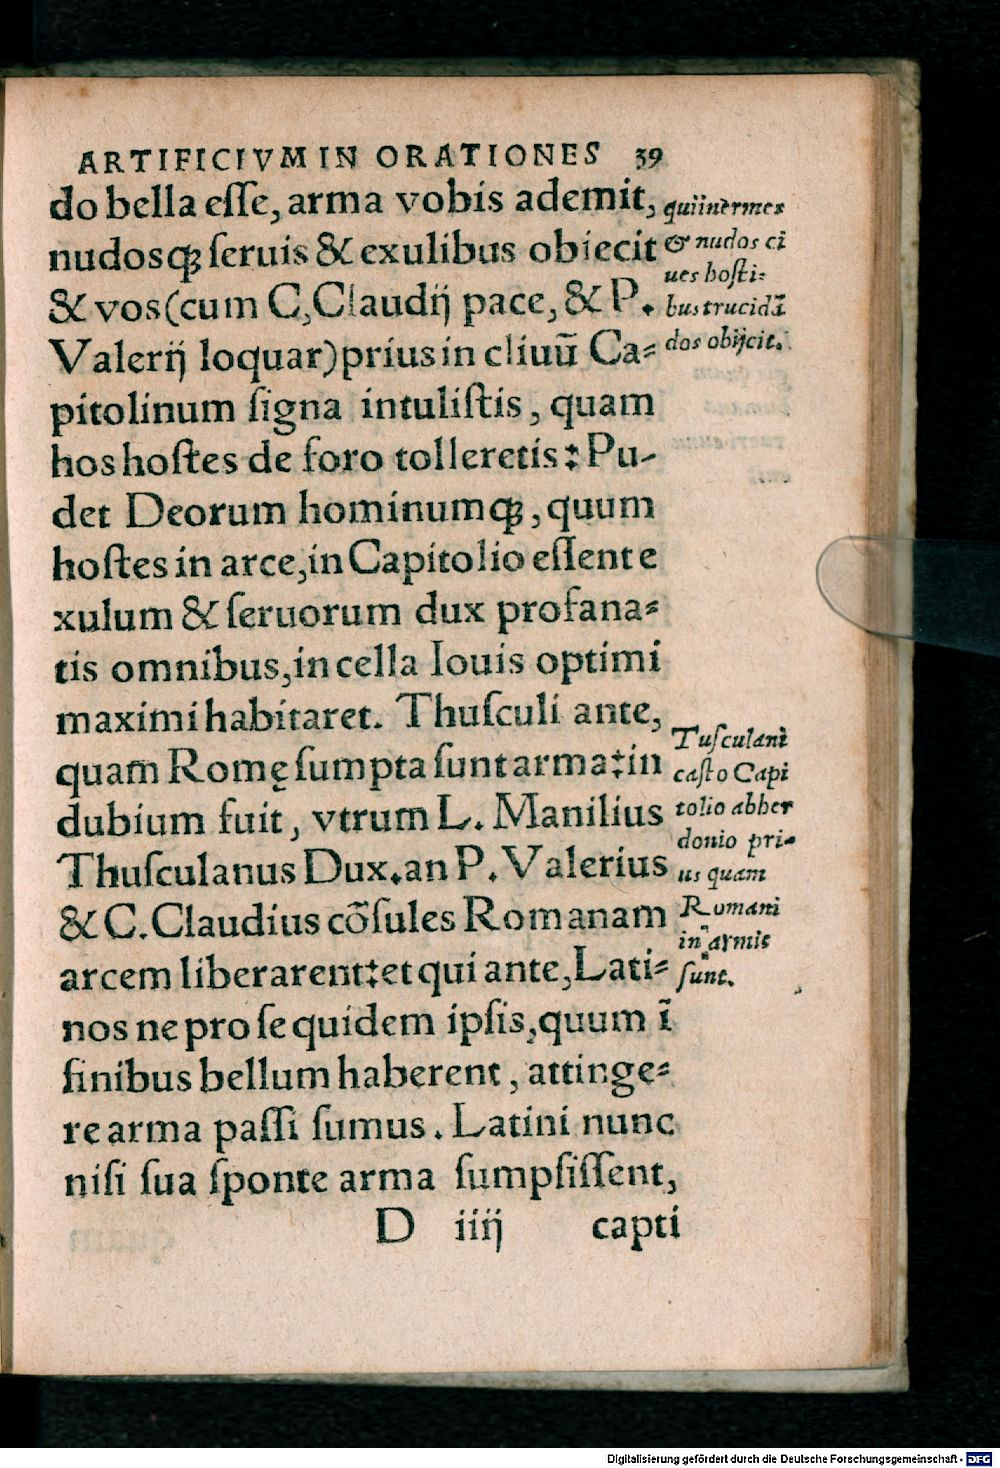 ARTIFICIVM IN ORATIONES 39
do bella eſſe, arma vobis ademit,
nudosq́ꝫ ſeruis & exulibus obiecit
& vos (cum C, Claudij pace, & P.
Valerij loquar) prius in cliuū Ca⸗
pitolinum ſigna intuliſtis, quam
hos hoſtes de foro tolleretis: Pu-
det Deorum hominumq́ꝫ, quum
hoſtes in arce, in Capitolio eſſent e
xulum & ſeruorum dux profana⸗
tis omnibus, in cella Iouis optimi
maximi habitaret. Thuſculi ante,
quam Romę ſumpta ſunt arma: in
dubium fuit, vtrum L. Manilius
Thuſculanus Dux. an P. Valerius
& C. Claudius cōſules Romanam
arcem liberarent: et qui ante, Lati⸗
nos ne pro ſe quidem ipſis, quum ī
finibus bellum haberent, attinge⸗
re arma paſſi ſumus. Latini nunc
niſi ſua ſponte arma ſumpſiſſent,
D iiij capti
qui inermes
& nudos ci
ues hoſti⸗
bus trucidā
dos obijcit.
Tuſculani
caſto Capi
tolio abher
donio pri-
us quam
Romani
in armis
ſunt.
Digitalisierung gefördert durch die Deutsche Forschungsgemeinschaft - DFG